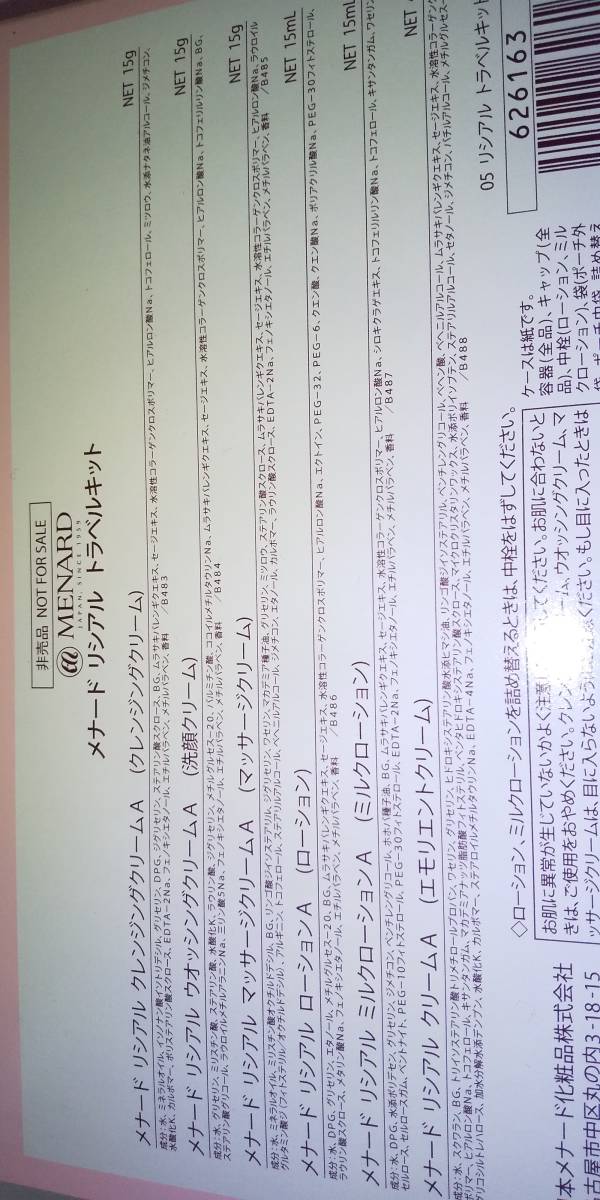 非売品 NOT FOR SALE
MENARD
JAPAN, SINCE 1959
メナード リシアル トラベルキット
メナード リシアル クレンジングクリームA (クレンジングクリーム) NET 15g
成分:水、ミネラルオイル、イソノナン酸イソトリデシル、グリセリン、DPG、ジグリセリン、ステアリン酸スクロース、BG、ムラサキバレンギクエキス、セージエキス、水溶性コラーゲンクロスポリマー、ヒアルロン酸Na、トコフェロール、ミツロウ、水添ナタネ油アルコール、ジメチコン、
水酸化K、カルボマー、ポリステアリン酸スクロース、EDTA-2Na、フェノキシエタノール、エチルパラベン、メチルパラベン、香料 /B483
メナード リシアル ウオッシングクリームA (洗顔クリーム) NET 15g
成分:水、グリセリン、ミリスチン酸、ステアリン酸、水酸化K、ラウリン酸、ジグリセリン、メチルグルセス-20、パルミチン酸、ココイルメチルタウリンNa、ムラサキバレンギクエキス、セージエキス、水溶性コラーゲンクロスポリマー、ヒアルロン酸Na、トコフェリルリン酸Na、BG、
ステアリン酸グリコール、ラウロイルメチルアラニンNa、ミリン酸5Na、フェノキシエタノール、エチルパラベン、メチルパラベン、香料 /B484
メナード リシアル マッサージクリームA (マッサージクリーム) NET 15g
成分:水、ミネラルオイル、ミリスチン酸オクチルドデシル、BG、リンゴ酸ジイソステアリル、ジグリセリン、ワセリン、マカデミア種子油、グリセリン、ミツロウ、ステアリン酸スクロース、ムラサキバレンギクエキス、セージエキス、水溶性コラーゲンクロスポリマー、ヒアルロン酸Na、ラウロイル
グルタミン酸ジ(フィトステリル/オクチルドデシル)、アルギニン、トコフェロール、ステアリルアルコール、ベヘニルアルコール、ジメチコン、エタノール、カルボマー、ラウリン酸スクロース、EDTA-2Na、フェノキシエタノール、エチルパラベン、メチルパラベン、香料 /B485
メナード リシアル ローションA (ローション) NET 15mL
成分:水、DPG、グリセリン、エタノール、メチルグルセス-20、BG、ムラサキバレンギクエキス、セージエキス、水溶性コラーゲンクロスポリマー、ヒアルロン酸Na、エクトイン、PEG-32、PEG-6、クエン酸、クエン酸Na、ポリアクリル酸Na、PEG-30フィトステロール、
ラウリン酸スクロース、メタリン酸Na、フェノキシエタノール、エチルパラベン、メチルパラベン、香料 /B486
メナード リシアル ミルクローションA (ミルクローション) NET 15mL
成分:水、DPG、水添ポリデセン、グリセリン、ジメチコン、ペンチレングリコール、ホホバ種子油、BG、ムラサキバレンギクエキス、セージエキス、水溶性コラーゲンクロスポリマー、ヒアルロン酸Na、シロキクラゲエキス、トコフェリルリン酸Na、トコフェロール、キサンタンガム、ワセリン、
セルロース、セルロースガム、ベントナイト、PEG-10フィトステロール、PEG-30フィトステロール、EDTA-2Na、フェノキシエタノール、エチルパラベン、メチルパラベン、香料 /B487
メナード リシアル クリームA (エモリエントクリーム) NET
成分:水、スクワラン、BG、トリイソステアリン酸トリメチロールプロパン、ワセリン、グリセリン、ヒドロキシステアリン酸水添ヒマシ油、リンゴ酸ジイソステアリル、ペンチレングリコール、ベヘン酸、ベヘニルアルコール、ムラサキバレンギクエキス、セージエキス、水溶性コラーゲンク
ポリマー、ヒアルロン酸Na、トコフェロール、キサンタンガム、マカデミアナッツ脂肪酸フィトステリル、ペンタヒドロキシステアリン酸スクロース、マイクロクリスタリンワックス、水添ポリイソブテン、ステアリルアルコール、セタノール、ジメチコン、バチルアルコール、メチルグルセス-
リコシルトレハロース、加水分解水添デンプン、水酸化K、カルボマー、ステアロイルメチルタウリンNa、EDTA-4Na、フェノキシエタノール、エチルパラベン、メチルパラベン、香料 /B488
05 リシアル トラベルキット
626163
◇ローション、ミルクローションを詰め替えるときは、中栓をはずしてください。
お肌に異常が生じていないかよく注意し
てください。お肌に合わないと
きは、ご使用をおやめください。クレン
ーム、ウオッシングクリーム、マ
ッサージクリームは、目に入らないように
ください。もし目に入ったときは
ケースは紙です。
容器(全品)、キャップ(全
品)、中栓(ローション、ミル
クローション)、袋(ポーチ外
袋、ポーチ内袋、詰め替え
本メナード化粧品株式会社
古屋市中区丸の内3-18-15